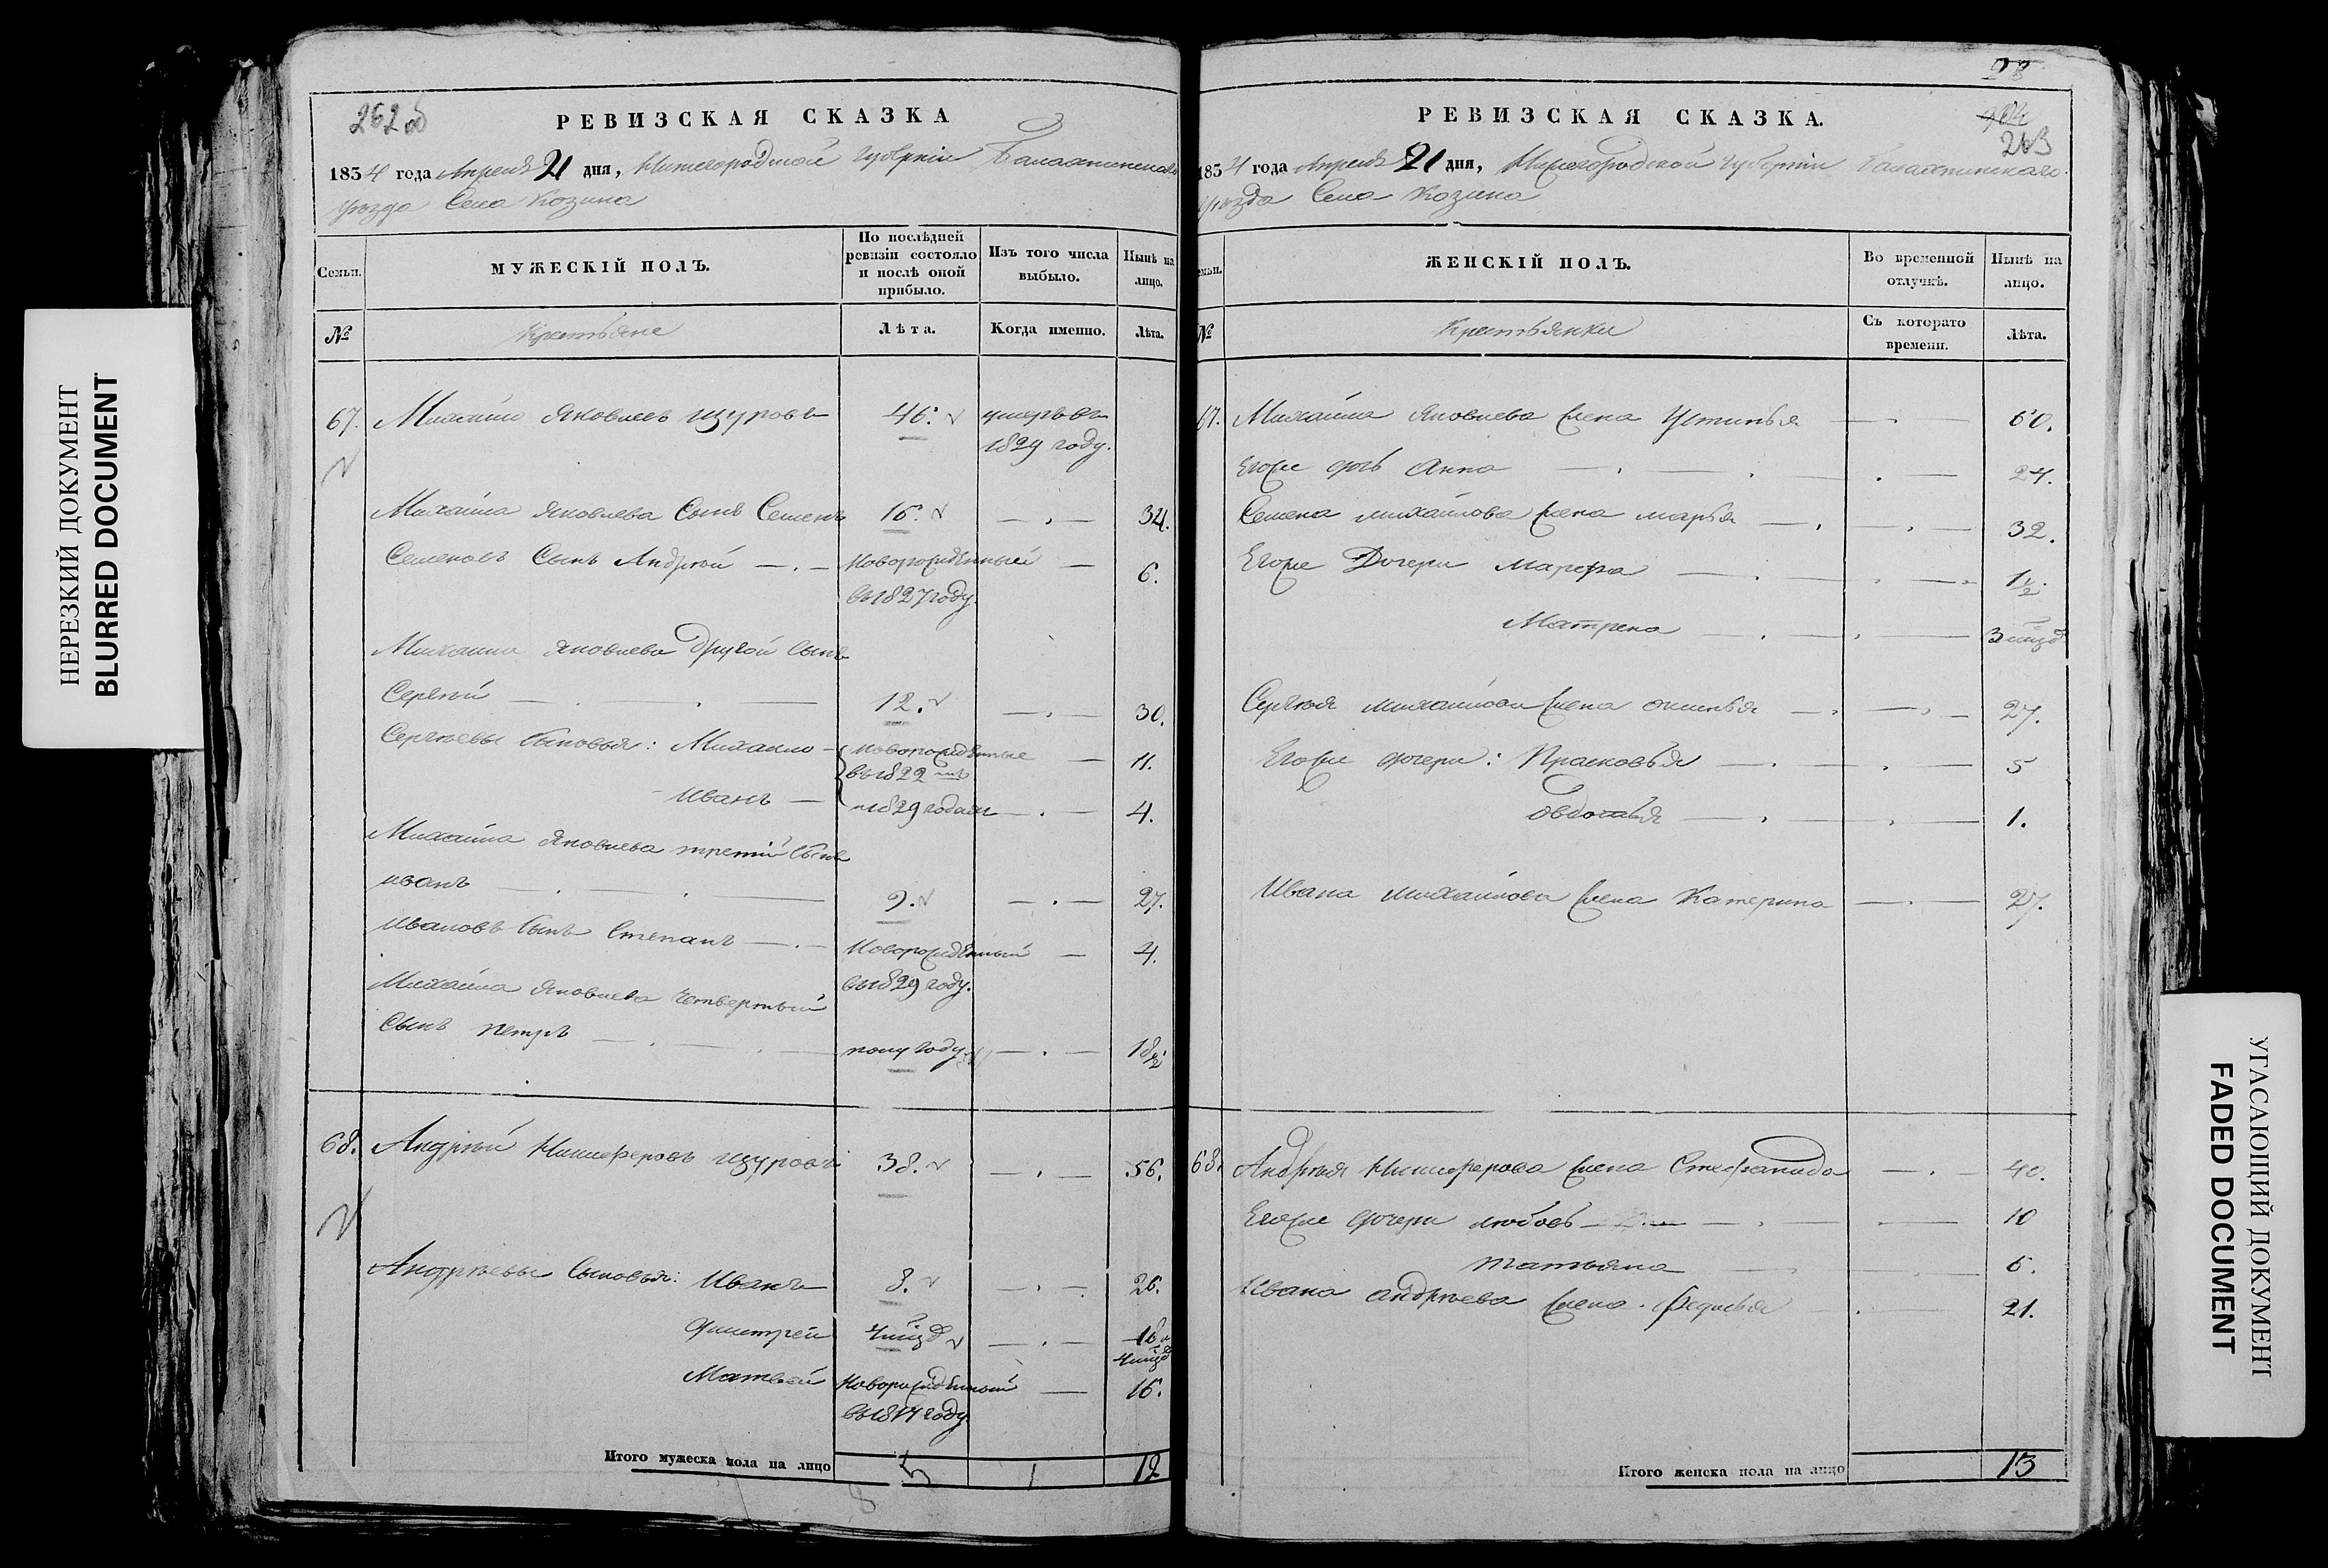 НЕРЕЗКИЙ ДОКУМЕНТ
BLURRED DOCUMENT
262 об
РЕВИЗСКАЯ СКАЗКА
1834 года Апреля 21 дня, Нижегородской Губернiи Балахнинскаго
уезда Села Козина
Семьи.
МУЖЕСКIЙ ПОЛЪ.
По послѣдней ревизiи состояло и послѣ оной прибыло.
Изъ того числа выбыло.
Нынѣ на лицо.
№
Крестьяне
Лѣта.
Когда именно.
Лѣта.
67. Михайло Яковлевъ Щуровъ 46. умеръ въ
1829 году.
Михайла Яковлева Сынъ Семенъ 16. 34.
Семеновъ Сынъ Андрей новорожденный 6.
въ 1827 году.
Михайла Яковлева другой Сынъ
Сергей 12. 30.
Сергеевы Сыновья: Михайло новорожденные 11.
въ 1822 мъ
Иванъ и 1829 годахъ 4.
Михайла Яковлева третiй Сынъ
Иванъ 9. 27.
Ивановъ Сынъ Степанъ Новорожденный 4.
въ 1829 году.
Михайла Яковлева четвертый
Сынъ Петръ полугоду 18½
68. Андрей Никифоровъ Щуровъ 38. 56.
Андреевы Сыновья: Иванъ 8. 26.
Дмитрей 4 мцд 18 и
4 мцд
Матвей Новорожденный 16.
въ 1817 году
Итого мужеска пола на лицо 5 1 12
8
28
263
РЕВИЗСКАЯ СКАЗКА.
1834 года Апреля 21 дня, Нижегородской Губернiи Балахнинскаго
уезда Села Козина
Семьи.
ЖЕНСКIЙ ПОЛЪ.
Во временной отлучкѣ.
Нынѣ на лицо.
№
Крестьянки
Съ которато времени.
Лѣта.
67. Михайла Яковлева жена Устинья 60.
Егоже дочь Анна 24.
Семена Михайлова жена Марья 32.
Егоже Дочери Марфа 1½.
Матрена 3 мцд
Сергея Михайлова жена Аксинья 27.
Егоже дочери: Прасковья 5
Овдотья 1.
Ивана Михайлова жена Катерина 27.
68. Андрея Никифорова жена Стефанида 40.
Егоже дочери Любовь 10
Татьяна 6.
Ивана Андреева жена Федосья 21.
Итого женска пола на лицо 13
УГАСАЮЩИЙ ДОКУМЕНТ
FADED DOCUMENT